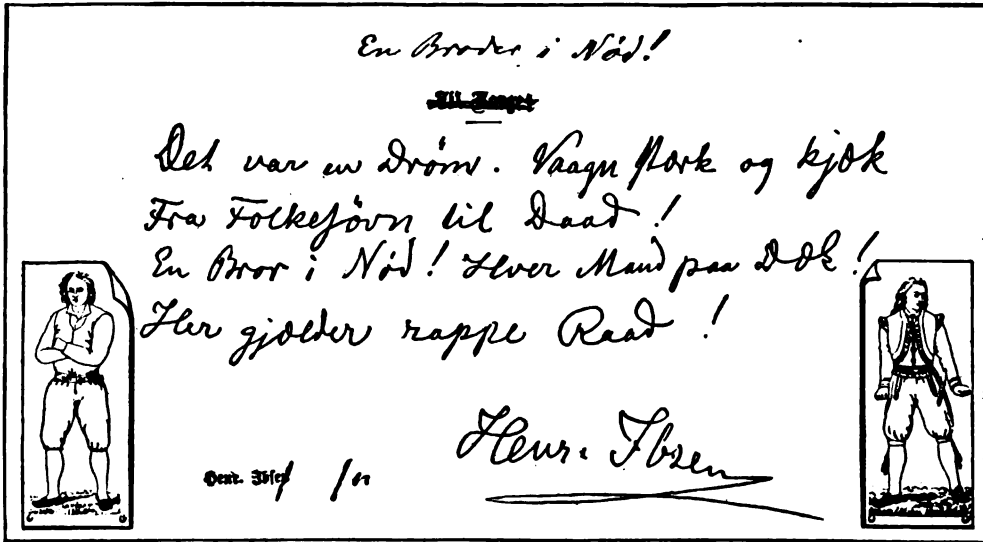 En Broder i Nöd!
Det var en Dröm. Vaagn stærk og kjæk
Fra Folkesövn til Daad!
En Bror i Nöd! Hver Mand paa Dæk!
Her gjælder rappe Raad!
Henr. Ibsen
Henr. Ibsen